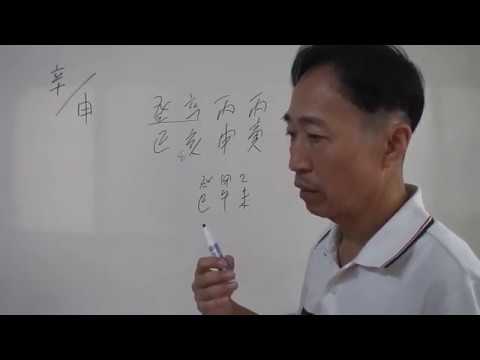 辛/申
癸 辛 丙 丙
巳 亥 申 寅
癸 甲 乙
巳 午 未